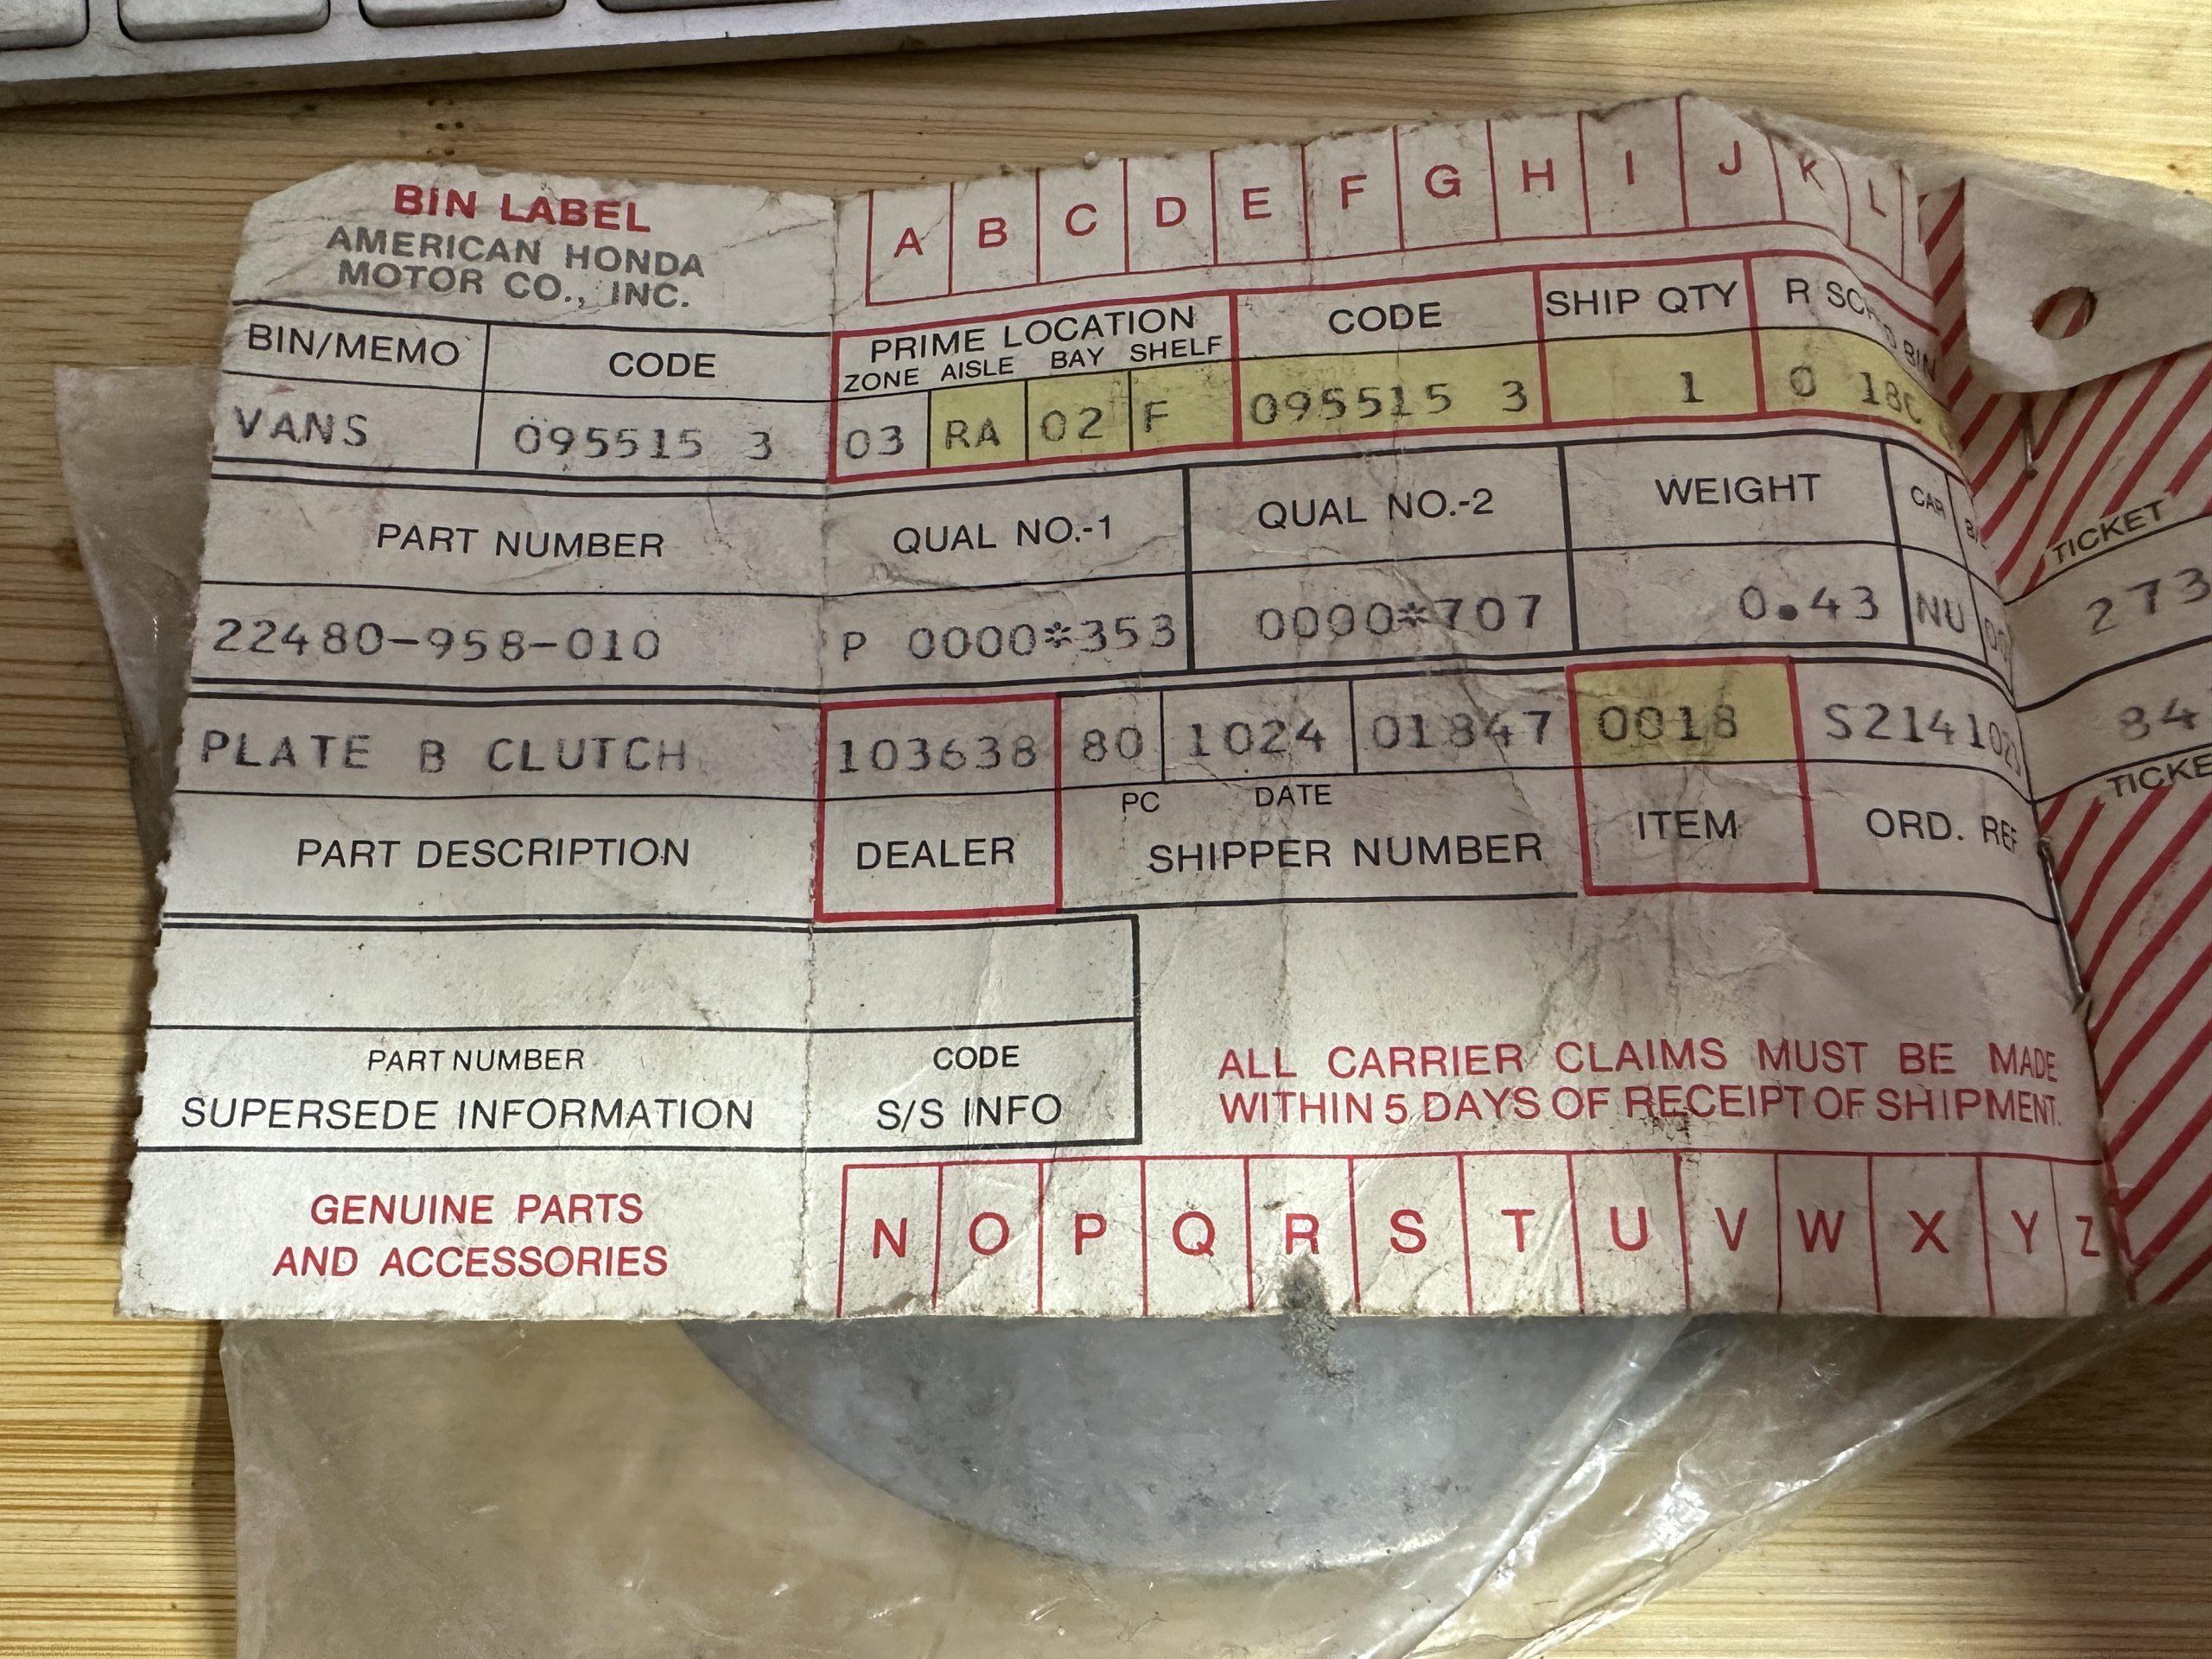 BIN LABEL
AMERICAN HONDA
MOTOR CO., INC.
A B C D E F G H I J K L
BIN/MEMO CODE
VANS 095515 3
PRIME LOCATION
ZONE AISLE BAY SHELF
03 RA 02 F
CODE
095515 3
SHIP QTY
1
R
BIN
0 18C
PART NUMBER
22480-958-010
QUAL NO.-1
P 0000*353
QUAL NO.-2
0000*707
WEIGHT
0.43
CAR
NU
TICKET
273
84
PLATE B CLUTCH
PART DESCRIPTION
103638
DEALER
80 1024 01847
PC DATE
SHIPPER NUMBER
0018
ITEM
ORD. REF
PART NUMBER
SUPERSEDE INFORMATION
CODE
S/S INFO
ALL CARRIER CLAIMS MUST BE MADE
WITHIN 5 DAYS OF RECEIPT OF SHIPMENT.
GENUINE PARTS
AND ACCESSORIES
N O P Q R S T U V W X Y Z